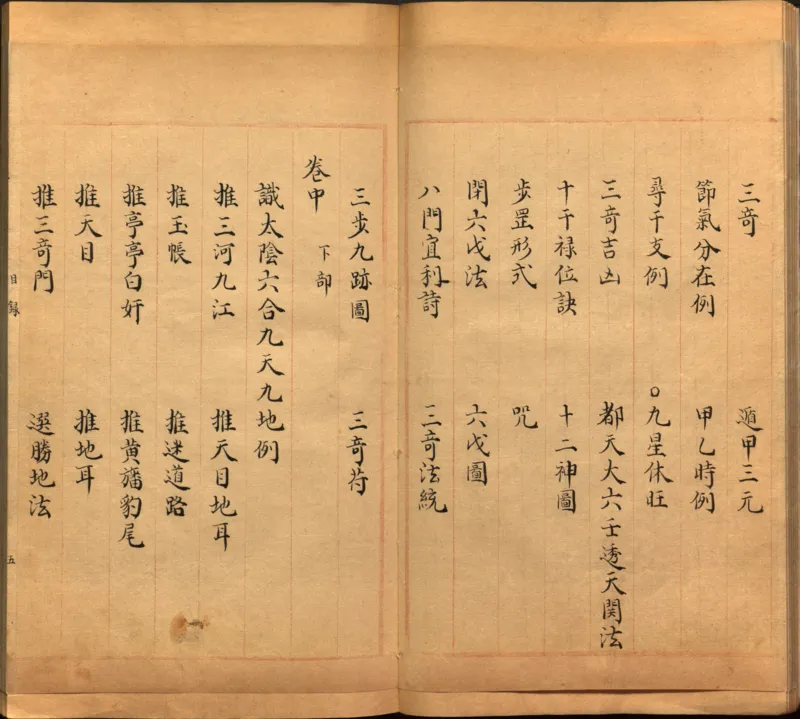 三奇 遁甲三元
節氣分在例 甲乙時例
尋干支例 ○九星休旺
三奇吉凶 都天大六壬透天関法
十干禄位訣 十二神圖
步罡形式 咒
閉六戊法 六戊圖
八門宜利詩 三奇法統
三步九跡圖 三奇符
卷中 下部
識太陰六合九天九地例
推三河九江 推天目地耳
推玉帳 推迷道路
推亭亭白奸 推黃旛豹尾
推天目 推地耳
推三奇門 選勝地法
目録 五